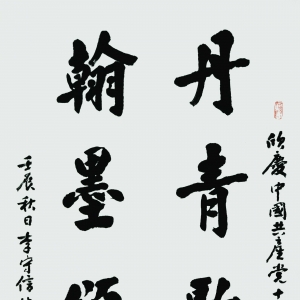 欣慶中國共產党十
丹青歌
翰墨頌
壬辰秋日李守信